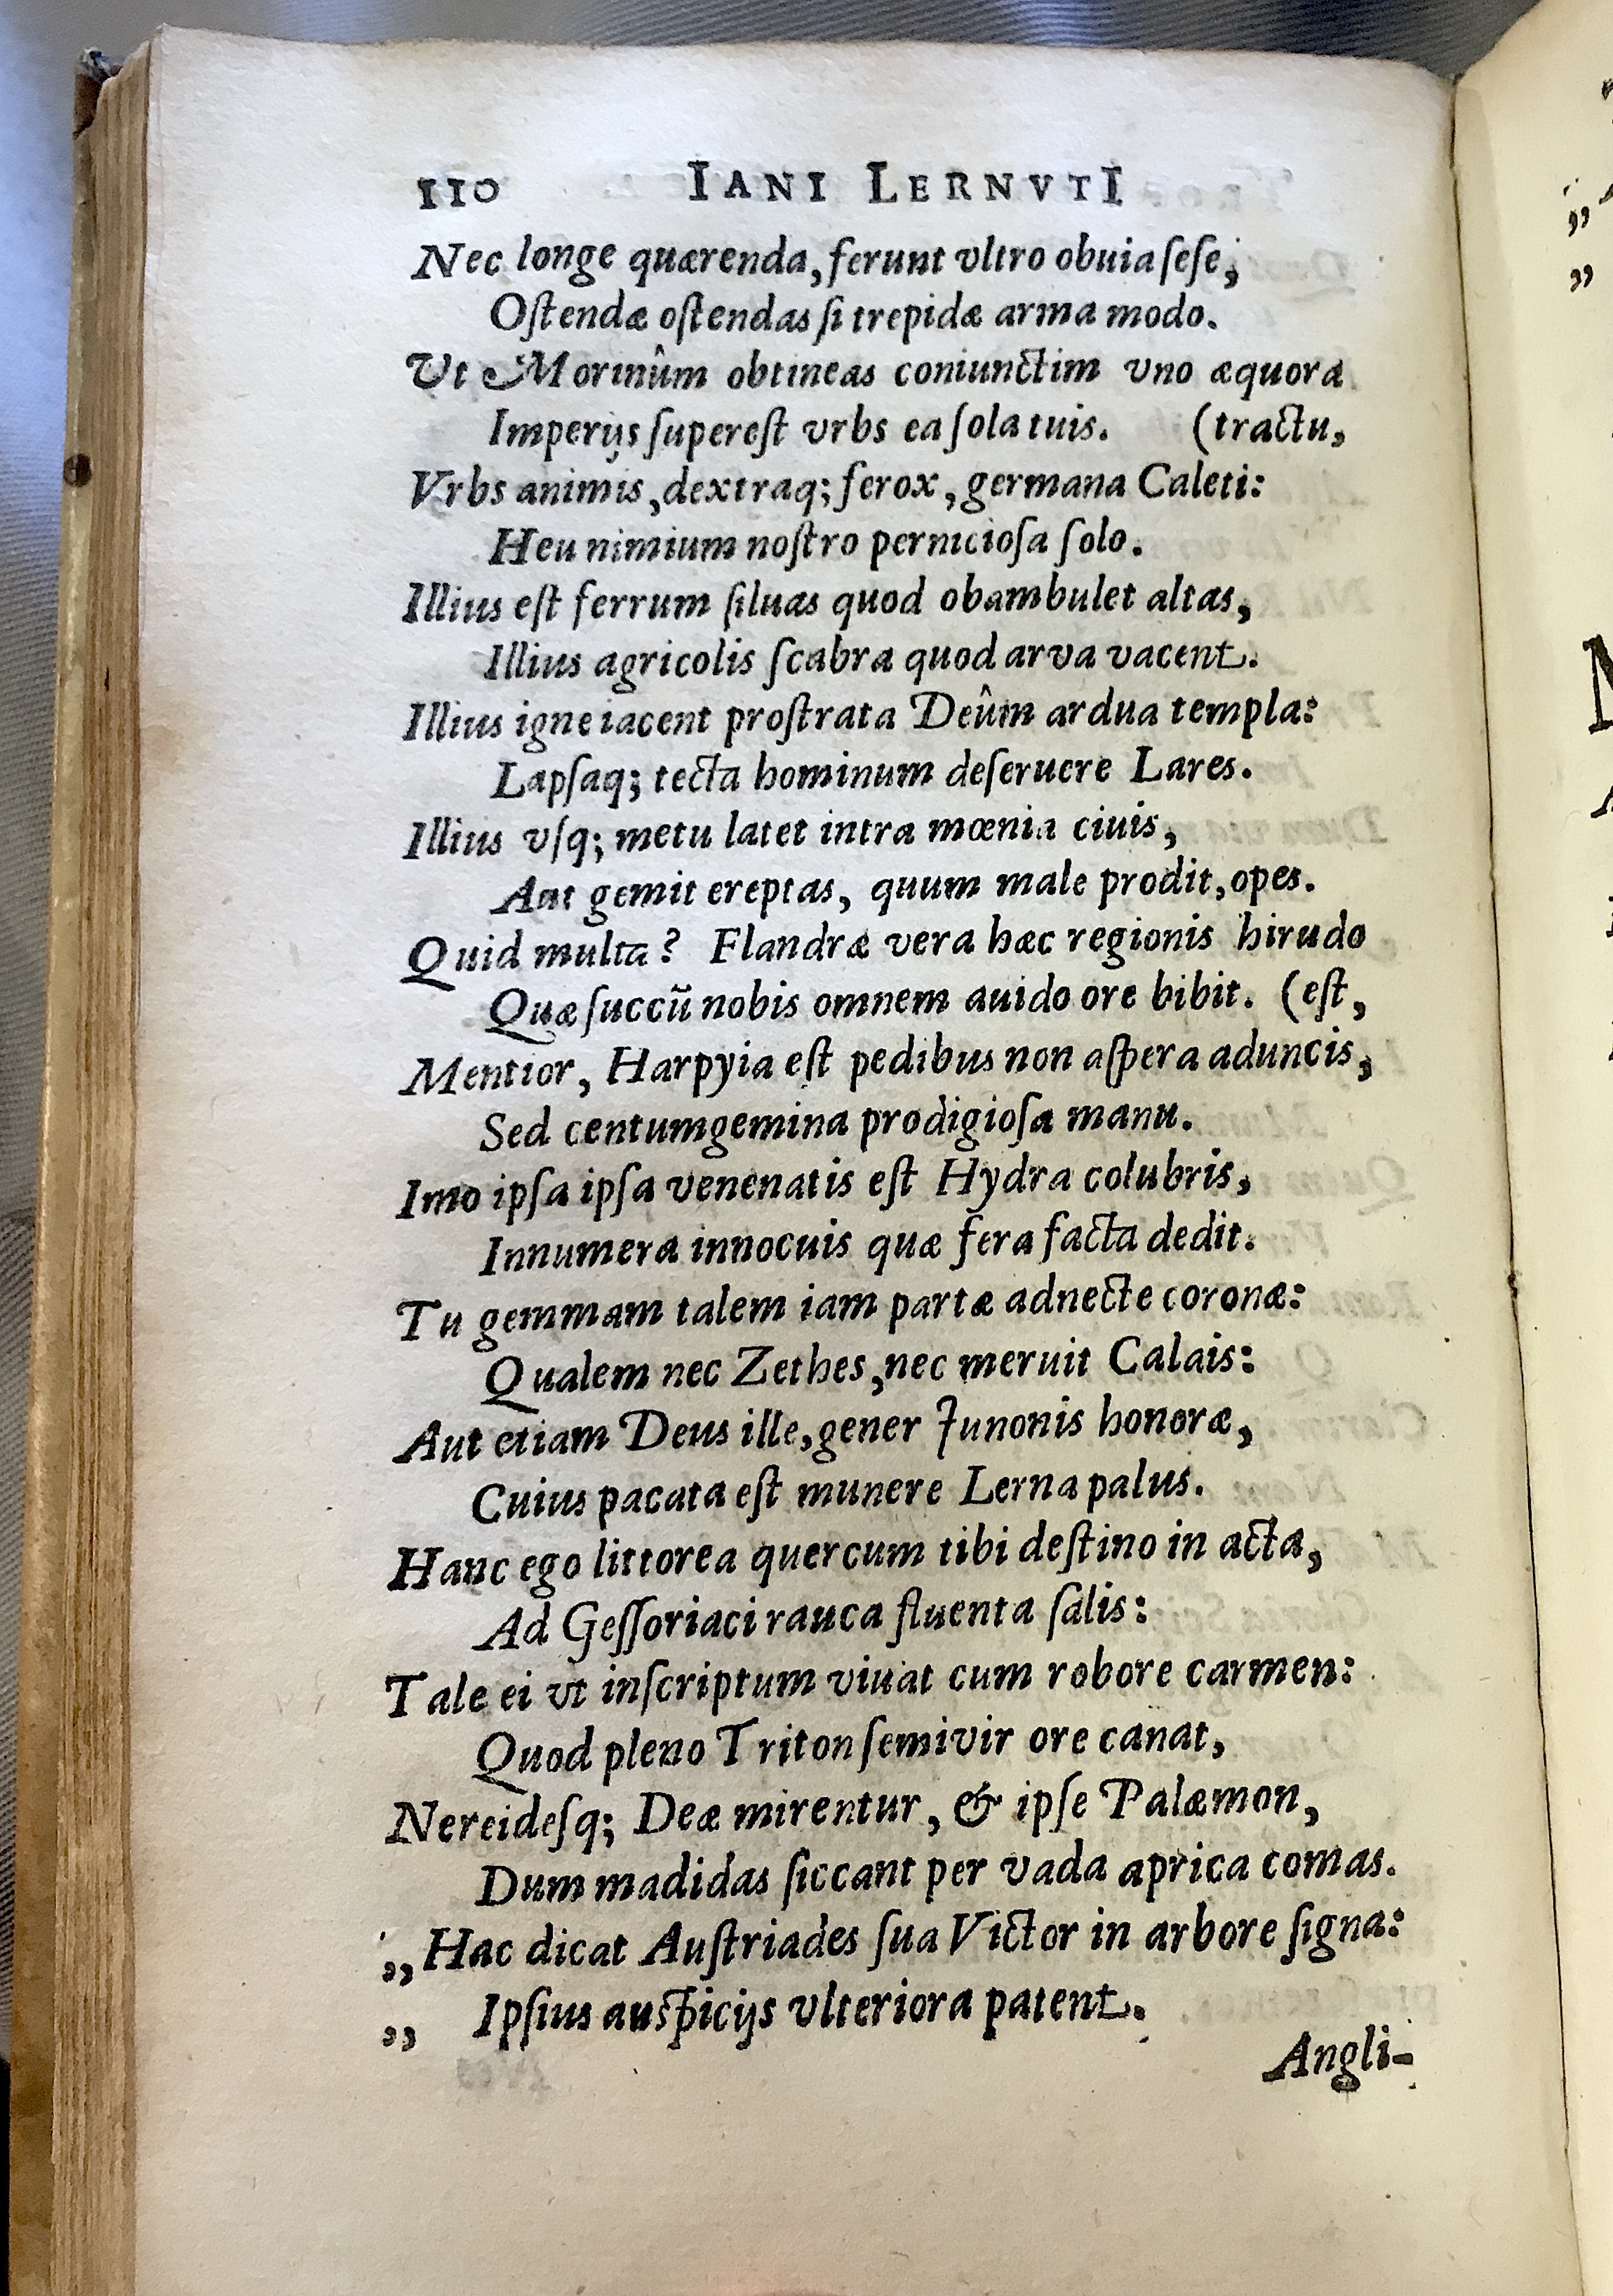 110 IANI LERNVTI
Nec longe quærenda, ferunt vltro obuia ſeſe,
Oſtendæ oſtendas ſi trepidæ arma modo.
Ut Morinûm obtineas coniunctim vno æquora
Imperijs ſupereſt vrbs ea ſola tuis. (tractu,
Vrbs animis, dextraq; ferox, germana Caleti:
Heu nimium noſtro pernicioſa ſolo.
Illius eſt ferrum ſiluas quod obambulet altas,
Illius agricolis ſcabra quod arva vacent.
Illius igne iacent proſtrata Deûm ardua templa:
Lapſaq; tecta hominum deſeruere Lares.
Illius vſq; metu latet intra mœnia ciuis,
Aut gemit ereptas, quum male prodit, opes.
Quid multa? Flandræ vera hæc regionis hirudo
Quæ ſuccū nobis omnem auido ore bibit. (eſt,
Mentior, Harpyia eſt pedibus non aſpera aduncis,
Sed centumgemina prodigioſa manu.
Imo ipſa ipſa venenatis eſt Hydra colubris,
Innumera innocuis quæ fera facta dedit.
Tu gemmam talem iam partæ adnecte coronæ:
Qualem nec Zethes, nec meruit Calais:
Aut etiam Deus ille, gener Junonis honoræ,
Cuius pacata eſt munere Lerna palus.
Hanc ego littorea quercum tibi deſtino in acta,
Ad Geſſoriaci rauca fluenta ſalis:
Tale ei vt inſcriptum viuat cum robore carmen:
Quod pleno Triton ſemivir ore canat,
Nereideſq; Deæ mirentur, & ipſe Palæmon,
Dum madidas ſiccant per vada aprica comas.
„ Hac dicat Auſtriades ſua Victor in arbore ſigna:
„ Ipſius auſpicijs vlteriora patent.
Angli-